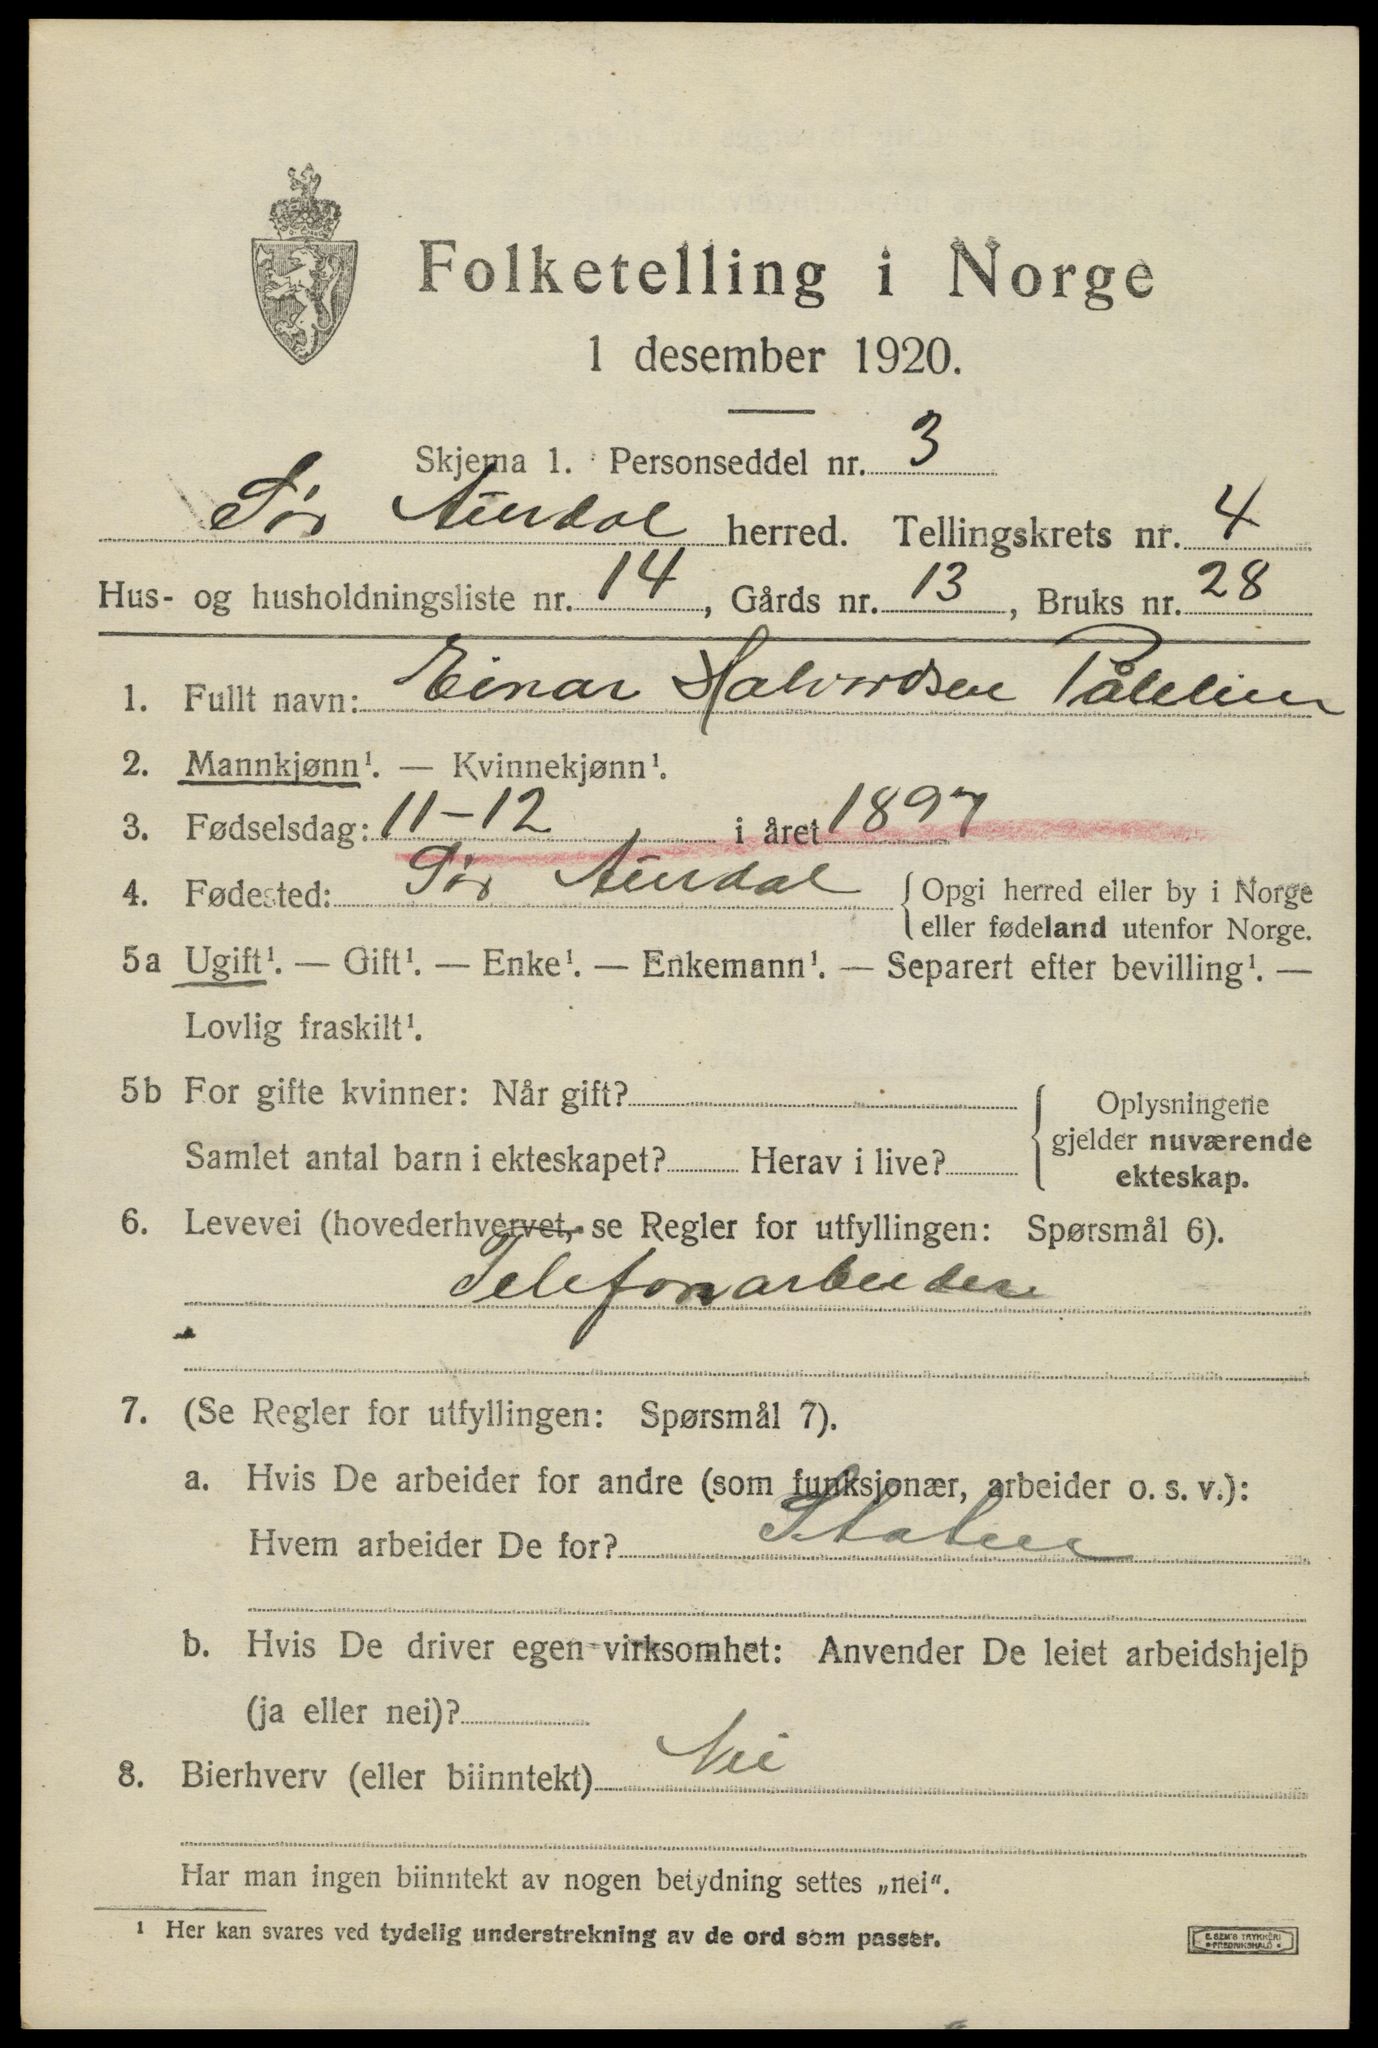 Folketelling i Norge
1 desember 1920.
Skjema 1. Personseddel nr. 3
Sør Aurdal herred. Tellingskrets nr. 4
Hus- og husholdningsliste nr. 14, Gårds nr. 13, Bruks nr. 28
1. Fullt navn: Einar Halvordsen
2. Mannkjønn¹. — Kvinnekjønn¹.
3. Fødselsdag: 11-12 i året 1897
4. Fødested: Sør Aurdal { Opgi herred eller by i Norge
eller fødeland utenfor Norge.
5a Ugift¹. — Gift¹. — Enke¹. — Enkemann¹. — Separert efter bevilling¹. —
Lovlig fraskilt¹.
5b For gifte kvinner: Når gift?
Samlet antal barn i ekteskapet? Herav i live?
{ Oplysningene
gjelder nuværende
ekteskap.
6. Levevei (hovederhvervet, se Regler for utfyllingen: Spørsmål 6).
Telefonarbeider
7. (Se Regler for utfyllingen: Spørsmål 7).
a. Hvis De arbeider for andre (som funksjonær, arbeider o. s. v.):
Hvem arbeider De for? Staten
b. Hvis De driver egen virksomhet: Anvender De leiet arbeidshjelp
(ja eller nei)?
8. Bierhverv (eller biinntekt) Nei
Har man ingen biinntekt av nogen betydning settes „nei“.
¹ Her kan svares ved tydelig understrekning av de ord som passer.
E. SEM'S TRYKKERI
FREDRIKSHALD